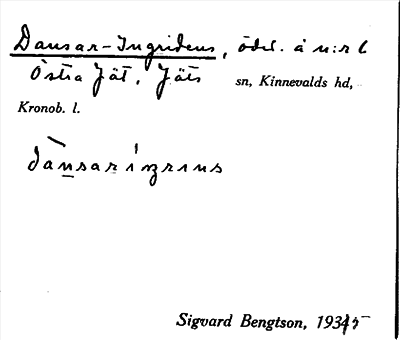 Dansar-Ingridens, ödel. å n:r 6
Östra Jät, Jäts sn, Kinnevalds hd,
Kronob. l.
dànsar íŋrıns
Sigvard Bengtson, 1935